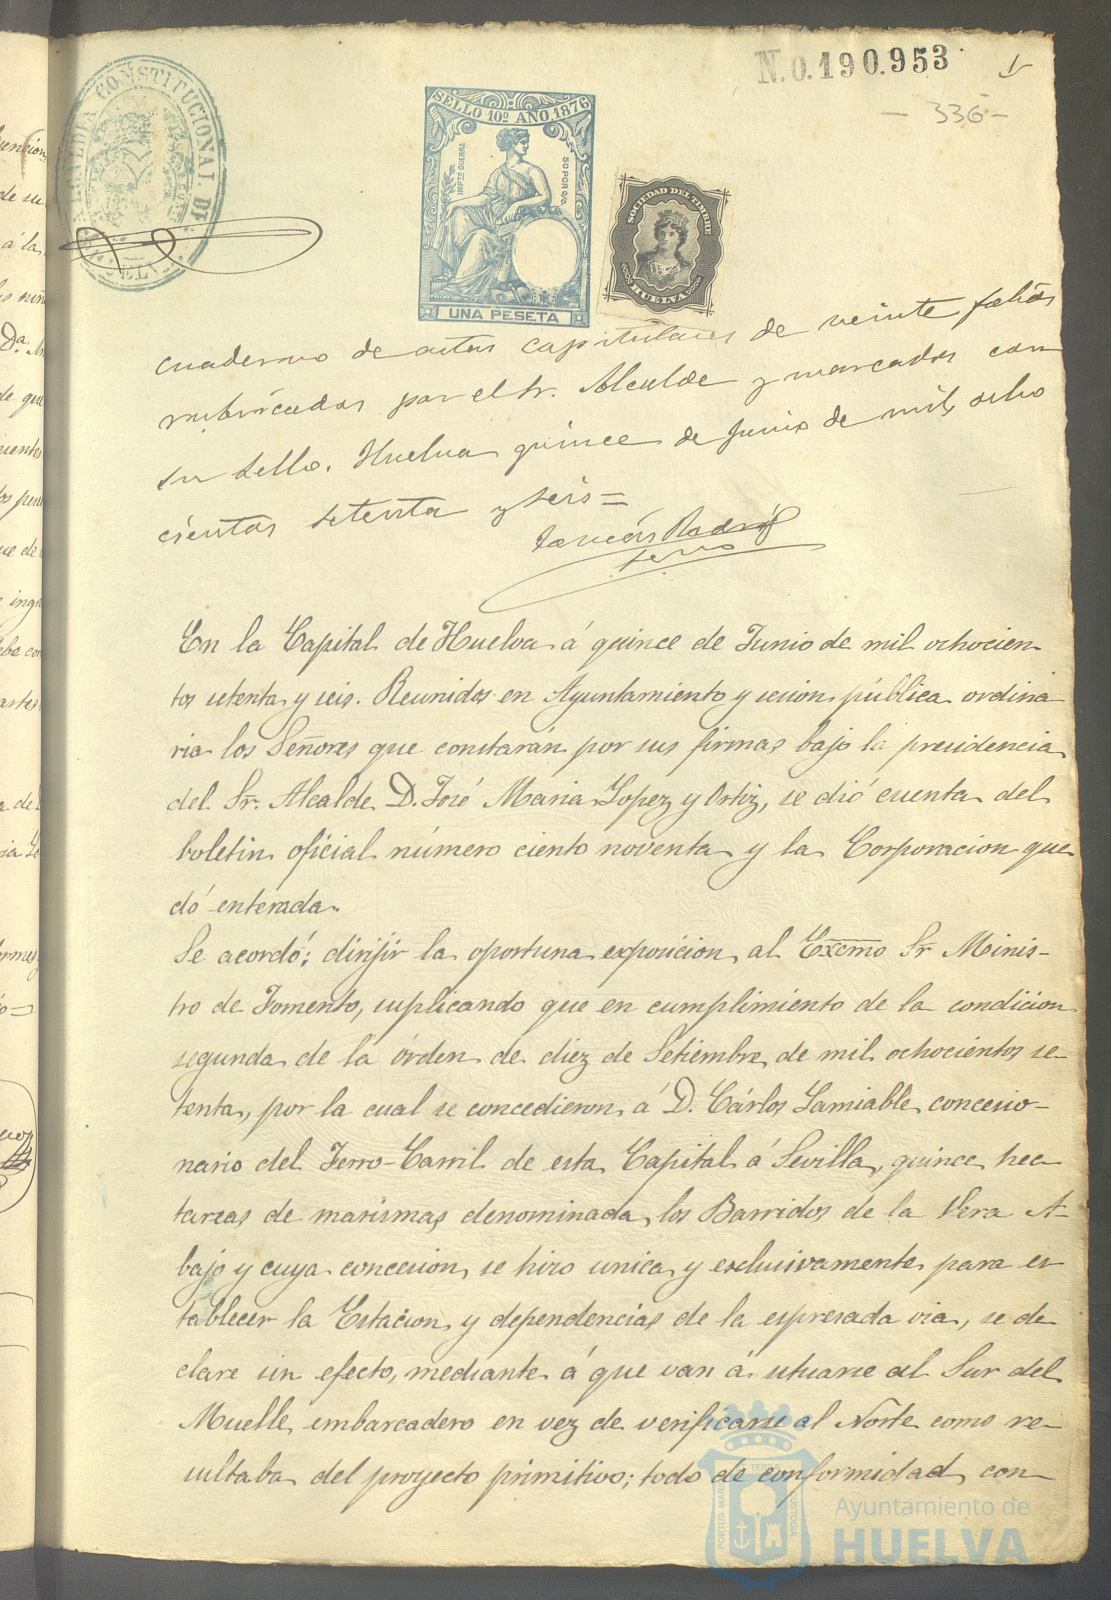 N.0.190.953
336
ALCALDIA CONSTITUCIONAL DE
SELLO 10º AÑO 1876
IMPTO. GUERRA
50 POR 0/0.
UNA PESETA
SOCIEDAD DEL TIMBRE
HUELVA
cuaderno de actas capitulares de veinte folios
rubricadas por el Sr. Alcalde y marcados con
su sello. Huelva quince de Junio de mil ocho
cientos setenta y seis=
En la Capital de Huelva á quince de Junio de mil ochocien
tos setenta y seis. Reunidos en Ayuntamiento y sesion pública ordina
ria los Señores que constarán por sus firmas bajo la presidencia
del Sr. Alcalde D. José Maria Lopez y Ortiz, se dió cuenta del
boletin oficial número ciento noventa y la Corporacion que
dó enterada.
Se acordó: dirijir la oportuna exposicion al Excmo Sr Minis-
tro de Fomento, suplicando que en cumplimiento de la condicion
segunda de la órden de diez de Setiembre de mil ochocientos se-
tenta, por la cual se concedieron á D. Cárlos Lamiable concesio-
nario del Ferro-Carril de esta Capital á Sevilla, quince hec
tareas de marismas denominada los Barridos de la Vera A-
bajo y cuya concesion se hizo unica y esclusivamente para es
tablecer la Estacion y dependencias de la espresada via, se de
clare sin efecto, mediante á que van á situarse al Sur del
Muelle embarcadero en vez de verificarse al Norte como re-
sultaba del proyecto primitivo; todo de conformidad con
Ayuntamiento de
HUELVA